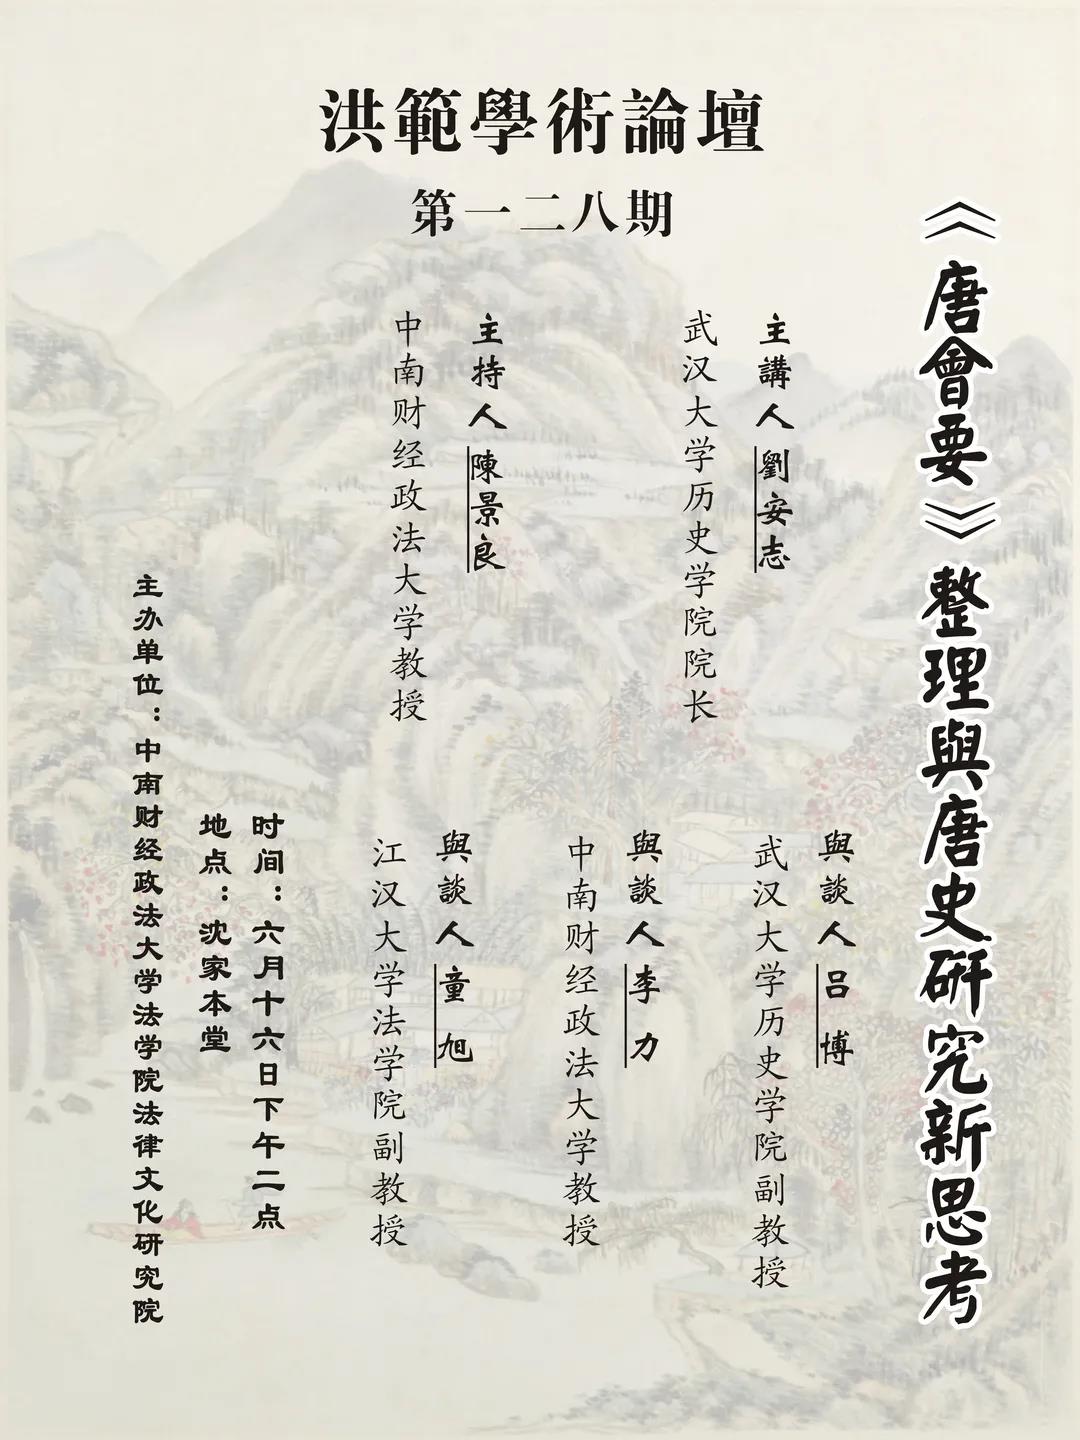 洪範學術論壇
第一二八期
《唐會要》整理與唐史研究新思考
主講人劉安志
武汉大学历史学院院长
主持人陳景良
中南财经政法大学教授
與談人吕博
武汉大学历史学院副教授
與談人李力
中南财经政法大学教授
與談人童旭
江汉大学法学院副教授
时间：六月十六日下午二点
地点：沈家本堂
主办单位：中南财经政法大学法学院法律文化研究院